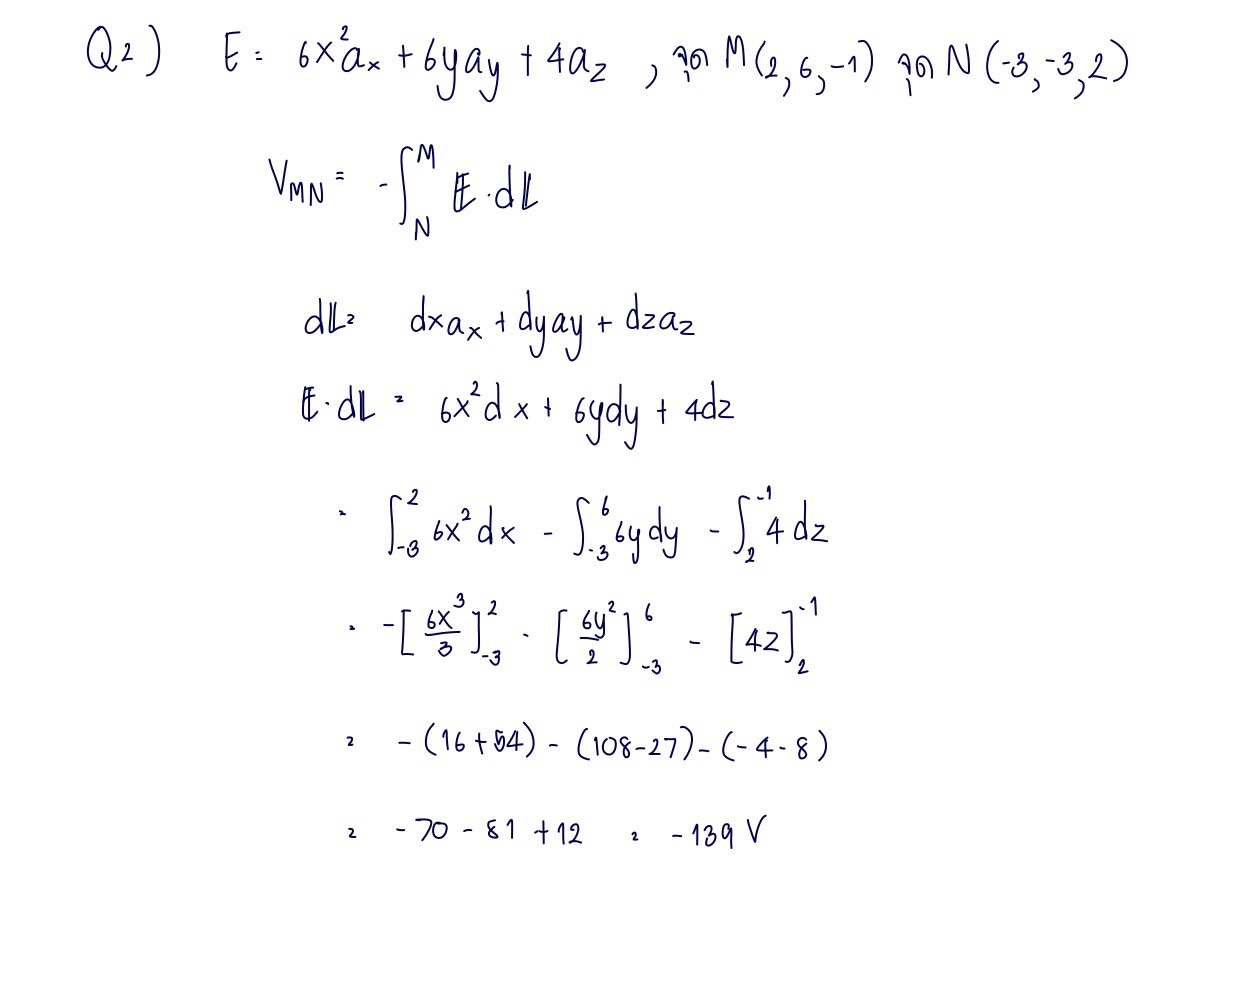 Q2) E = 6x²aₓ + 6yay + 4az , จุด M(2, 6, -1) จุด N (-3, -3, 2)
V_MN = -∫_N^M E · dL
dL = dxaₓ + dyay + dzaz
E · dL = 6x²dx + 6ydy + 4dz
= ∫_-3^2 6x²dx - ∫_-3^6 6ydy - ∫_2^-1 4dz
= -[6x³/3]_-3^2 - [6y²/2]_-3^6 - [4z]_2^-1
= -(16+54) - (108-27) - (-4-8)
= -70 - 81 + 12 = -139 V